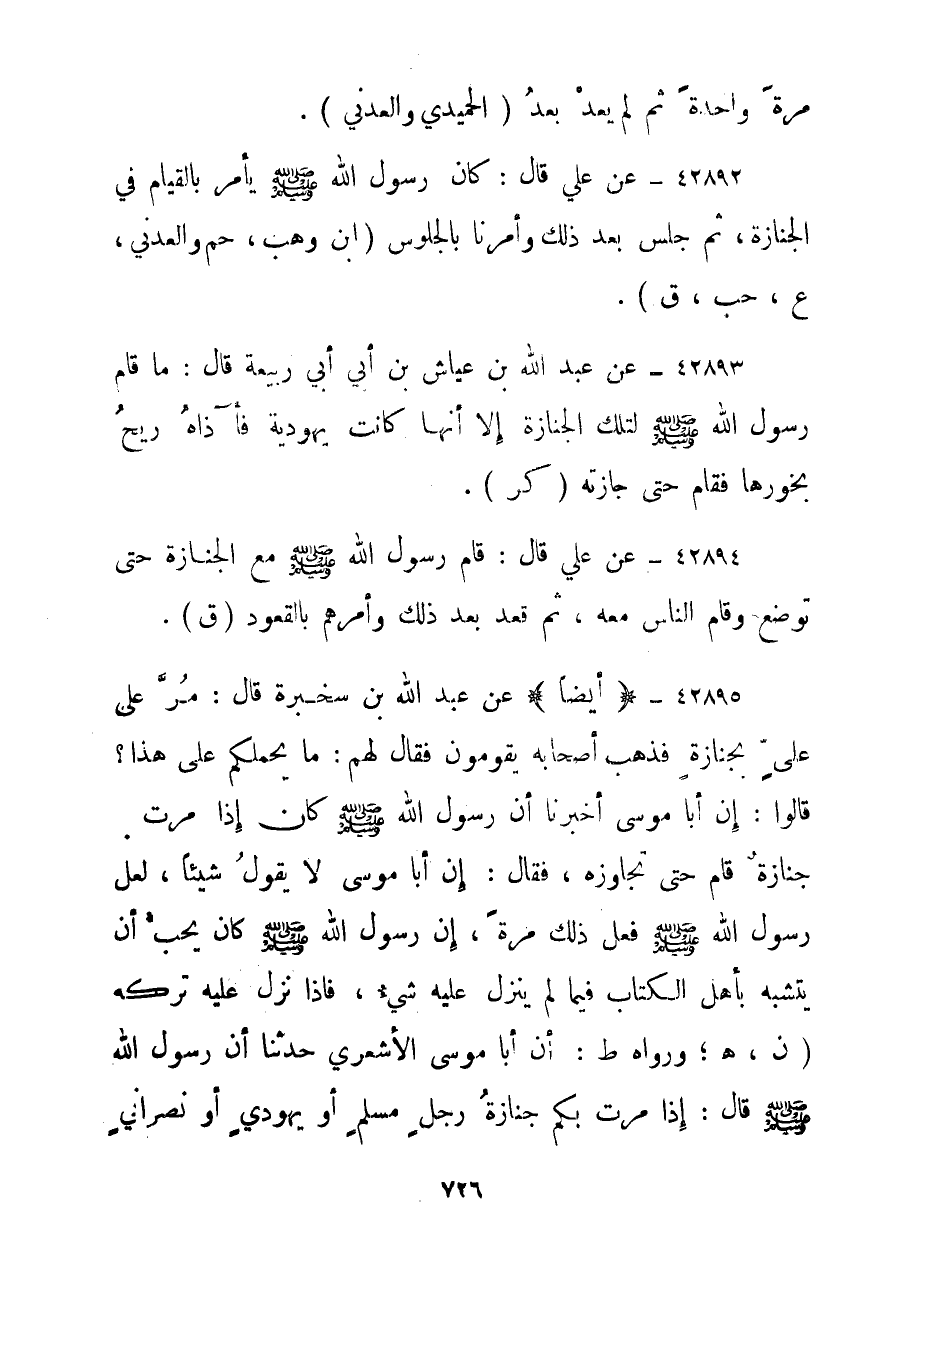 مرةً واحدةً ثم لم يعدْ بعدُ ( الحميدي والعدني ) .
٤٢٨٩٢ ــ عن علي قال : كان رسول الله ﷺ يأمر بالقيام في
الجنازة ، ثم جلس بعد ذلك وأمرنا بالجلوس ( ابن وهب ، حم والعدني ،
ع ، حب ، ق ) .
٤٢٨٩٣ ــ عن عبد الله بن عياش بن أبي أبي ربيعة قال : ما قام
رسول الله ﷺ لتلك الجنازة إلا أنها كانت يهودية فأَذاهُ ريحُ
بخورها فقام حتى جازته ( كر ) .
٤٢٨٩٤ ــ عن علي قال : قام رسول الله ﷺ مع الجنازة حتى
توضع وقام الناس معه ، ثم قعد بعد ذلك وأمرهم بالقعود ( ق ) .
٤٢٨٩٥ ــ ﴿ أيضاً ﴾ عن عبد الله بن سخبرة قال : مُرَّ على
عليٍّ بجنازةٍ فذهب أصحابه يقومون فقال لهم : ما يحملكم على هذا ؟
قالوا : إن أبا موسى أخبرنا أن رسول الله ﷺ كان إذا مرت
جنازةٌ قام حتى تجاوزه ، فقال : إن أبا موسى لا يقولُ شيئاً ، لعل
رسول الله ﷺ فعل ذلك مرةً ، إن رسول الله ﷺ كان يحبُّ أن
يتشبه بأهل الكتاب فيما لم ينزل عليه شيء ، فاذا نزل عليه تركه
( ن ، ه ؛ ورواه ط : أن أبا موسى الأشعري حدثنا أن رسول الله
ﷺ قال : إذا مرت بكم جنازةُ رجلٍ مسلمٍ أو يهوديٍ أو نصرانيٍ
٧٢٦